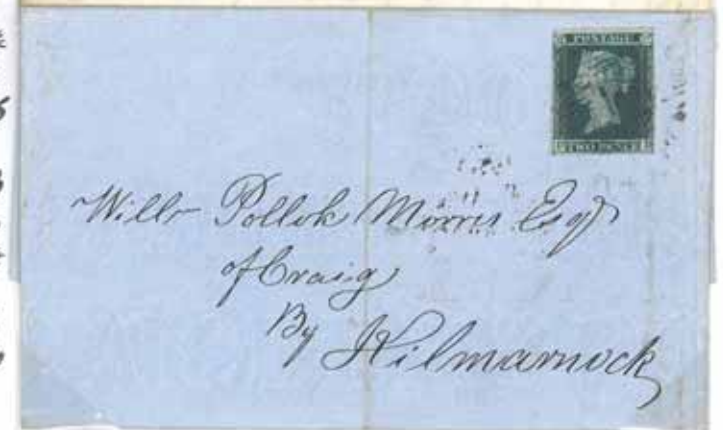 POSTAGE
TWO PENCE
Willm Pollok Morris Esqr
of Craig
By
Kilmarnock